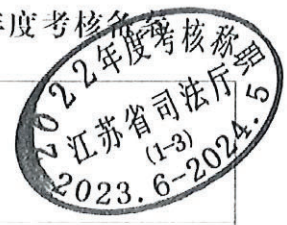 年度考核备案
2022年度考核称职
江苏省司法厅
(1-3)
2023.6-2024.5